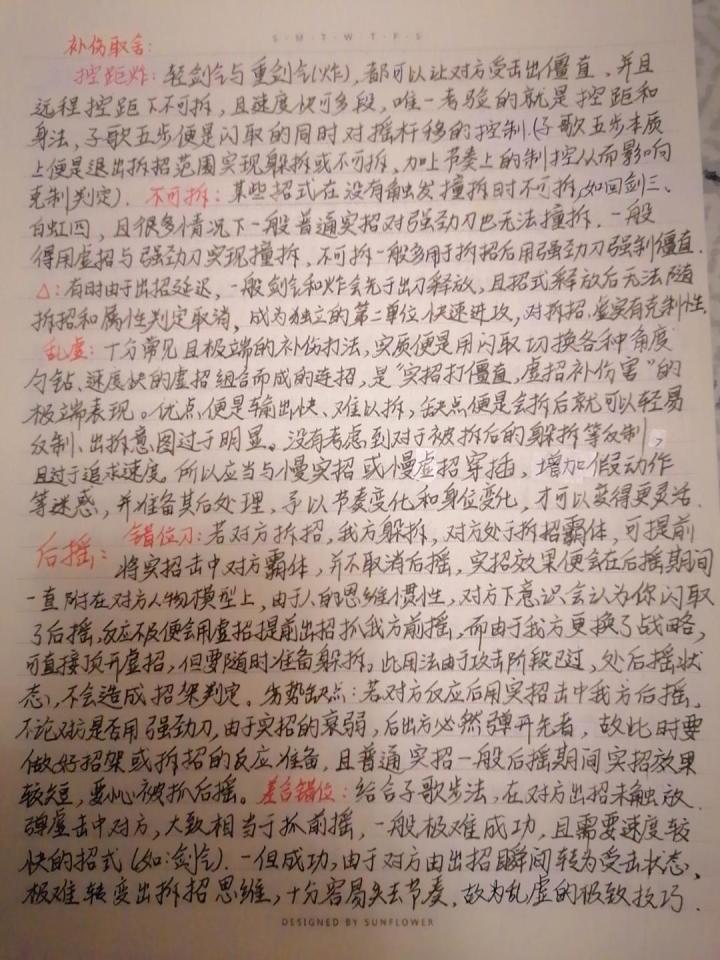 S·M·T·W·T·F·S
补伤取舍:
控距炸: 轻剑气与重剑气(炸), 都可以让对方受击出僵直, 并且
远程控距下不可拆, 且速度快可多段, 唯一考验的就是控距和
身法, 子歌五步便是闪取的同时对摇杆移的控制.(子歌五步本质
上便是退出拆招范围实现躲拆或不可拆, 加上节奏上的制控从而影响
克制判定). 不可拆: 某些招式在没有触发撞拆时不可拆, 如回剑三、
白虹四, 且很多情况下一般普通实招对强劲刀也无法撞拆. 一般
得用虚招与强劲刀实现撞拆, 不可拆一般多用于拆招后用强劲刀强制僵直.
△: 有时由于出招延迟, 一般剑气和炸会先于出刀释放, 且招式释放后无法随
拆招和属性判定取消, 成为独立的第二单位快速进攻, 对拆招.虚实有克制性.
乱虚: 十分常见且极端的补伤打法, 实质便是用闪取切换各种角度
勺钻、速度快的虚招组合而成的连招, 是“实招打僵直, 虚招补伤害”的
极端表现。优点便是输出快、难以拆, 缺点便是会拆后就可以轻易
反制、出拆意图过于明显。没有考虑到对于被拆后的躲拆等反制,
且过于追求速度。所以应当与慢实招或慢虚招穿插, 增加假动作
等迷惑, 并准备其后处理, 予以节奏变化和身位变化, 才可以变得更灵活.
后摇: 错位刀: 若对方拆招, 我方躲拆, 对方处于拆招霸体, 可提前
将实招击中对方霸体, 并不取消后摇, 实招效果便会在后摇期间
一直附在对方人物模型上, 由于人的思维惯性, 对方下意识会认为你闪取
了后摇, 反应不及便会用虚招提前出招抓我方前摇, 而由于我方更换了战略,
可直接顶开虚招, 但要随时准备躲拆。此用法由于攻击阶段已过, 处后摇状
态, 不会造成招架判定。劣势缺点: 若对方反应后用实招击中我方后摇,
不论对方是否用强劲刀, 由于实招的衰弱, 后出方必然弹开先者, 故此时要
做好招架或拆招的反应准备, 且普通实招一般后摇期间实招效果
较短, 要小心被抓后摇。差合错位: 给合子歌步法, 在对方出招未触放
弹虚击中对方, 大致相当于抓前摇, 一般极难成功, 且需要速度较
快的招式(如:剑气). 一但成功, 由于对方由出招瞬间转为受击状态,
极难转变出拆招思维, 十分容易失去节奏, 故为乱虚的极致技巧.
DESIGNED BY SUNFLOWER